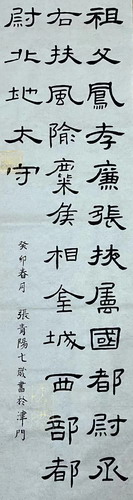 祖父鳳孝廉張掖屬國都尉丞
右扶風隃麋侯相金城西部都
尉北地太守
癸卯春月 張青陽七歲書於津門